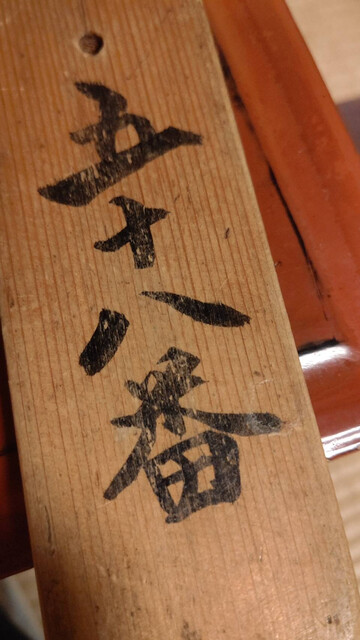 五十八番